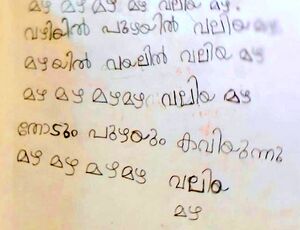 മഴ മഴ മഴ മഴ വലിയ മഴ.
വഴിയിൽ പുഴയിൽ വലിയ മഴ
മഴയിൽ വയലിൽ വലിയ മഴ
മഴ മഴ മഴമഴ വലിയ മഴ
തോടും പുഴയും കവിയുന്നു
മഴ മഴ മഴമഴ വലിയ
മഴ